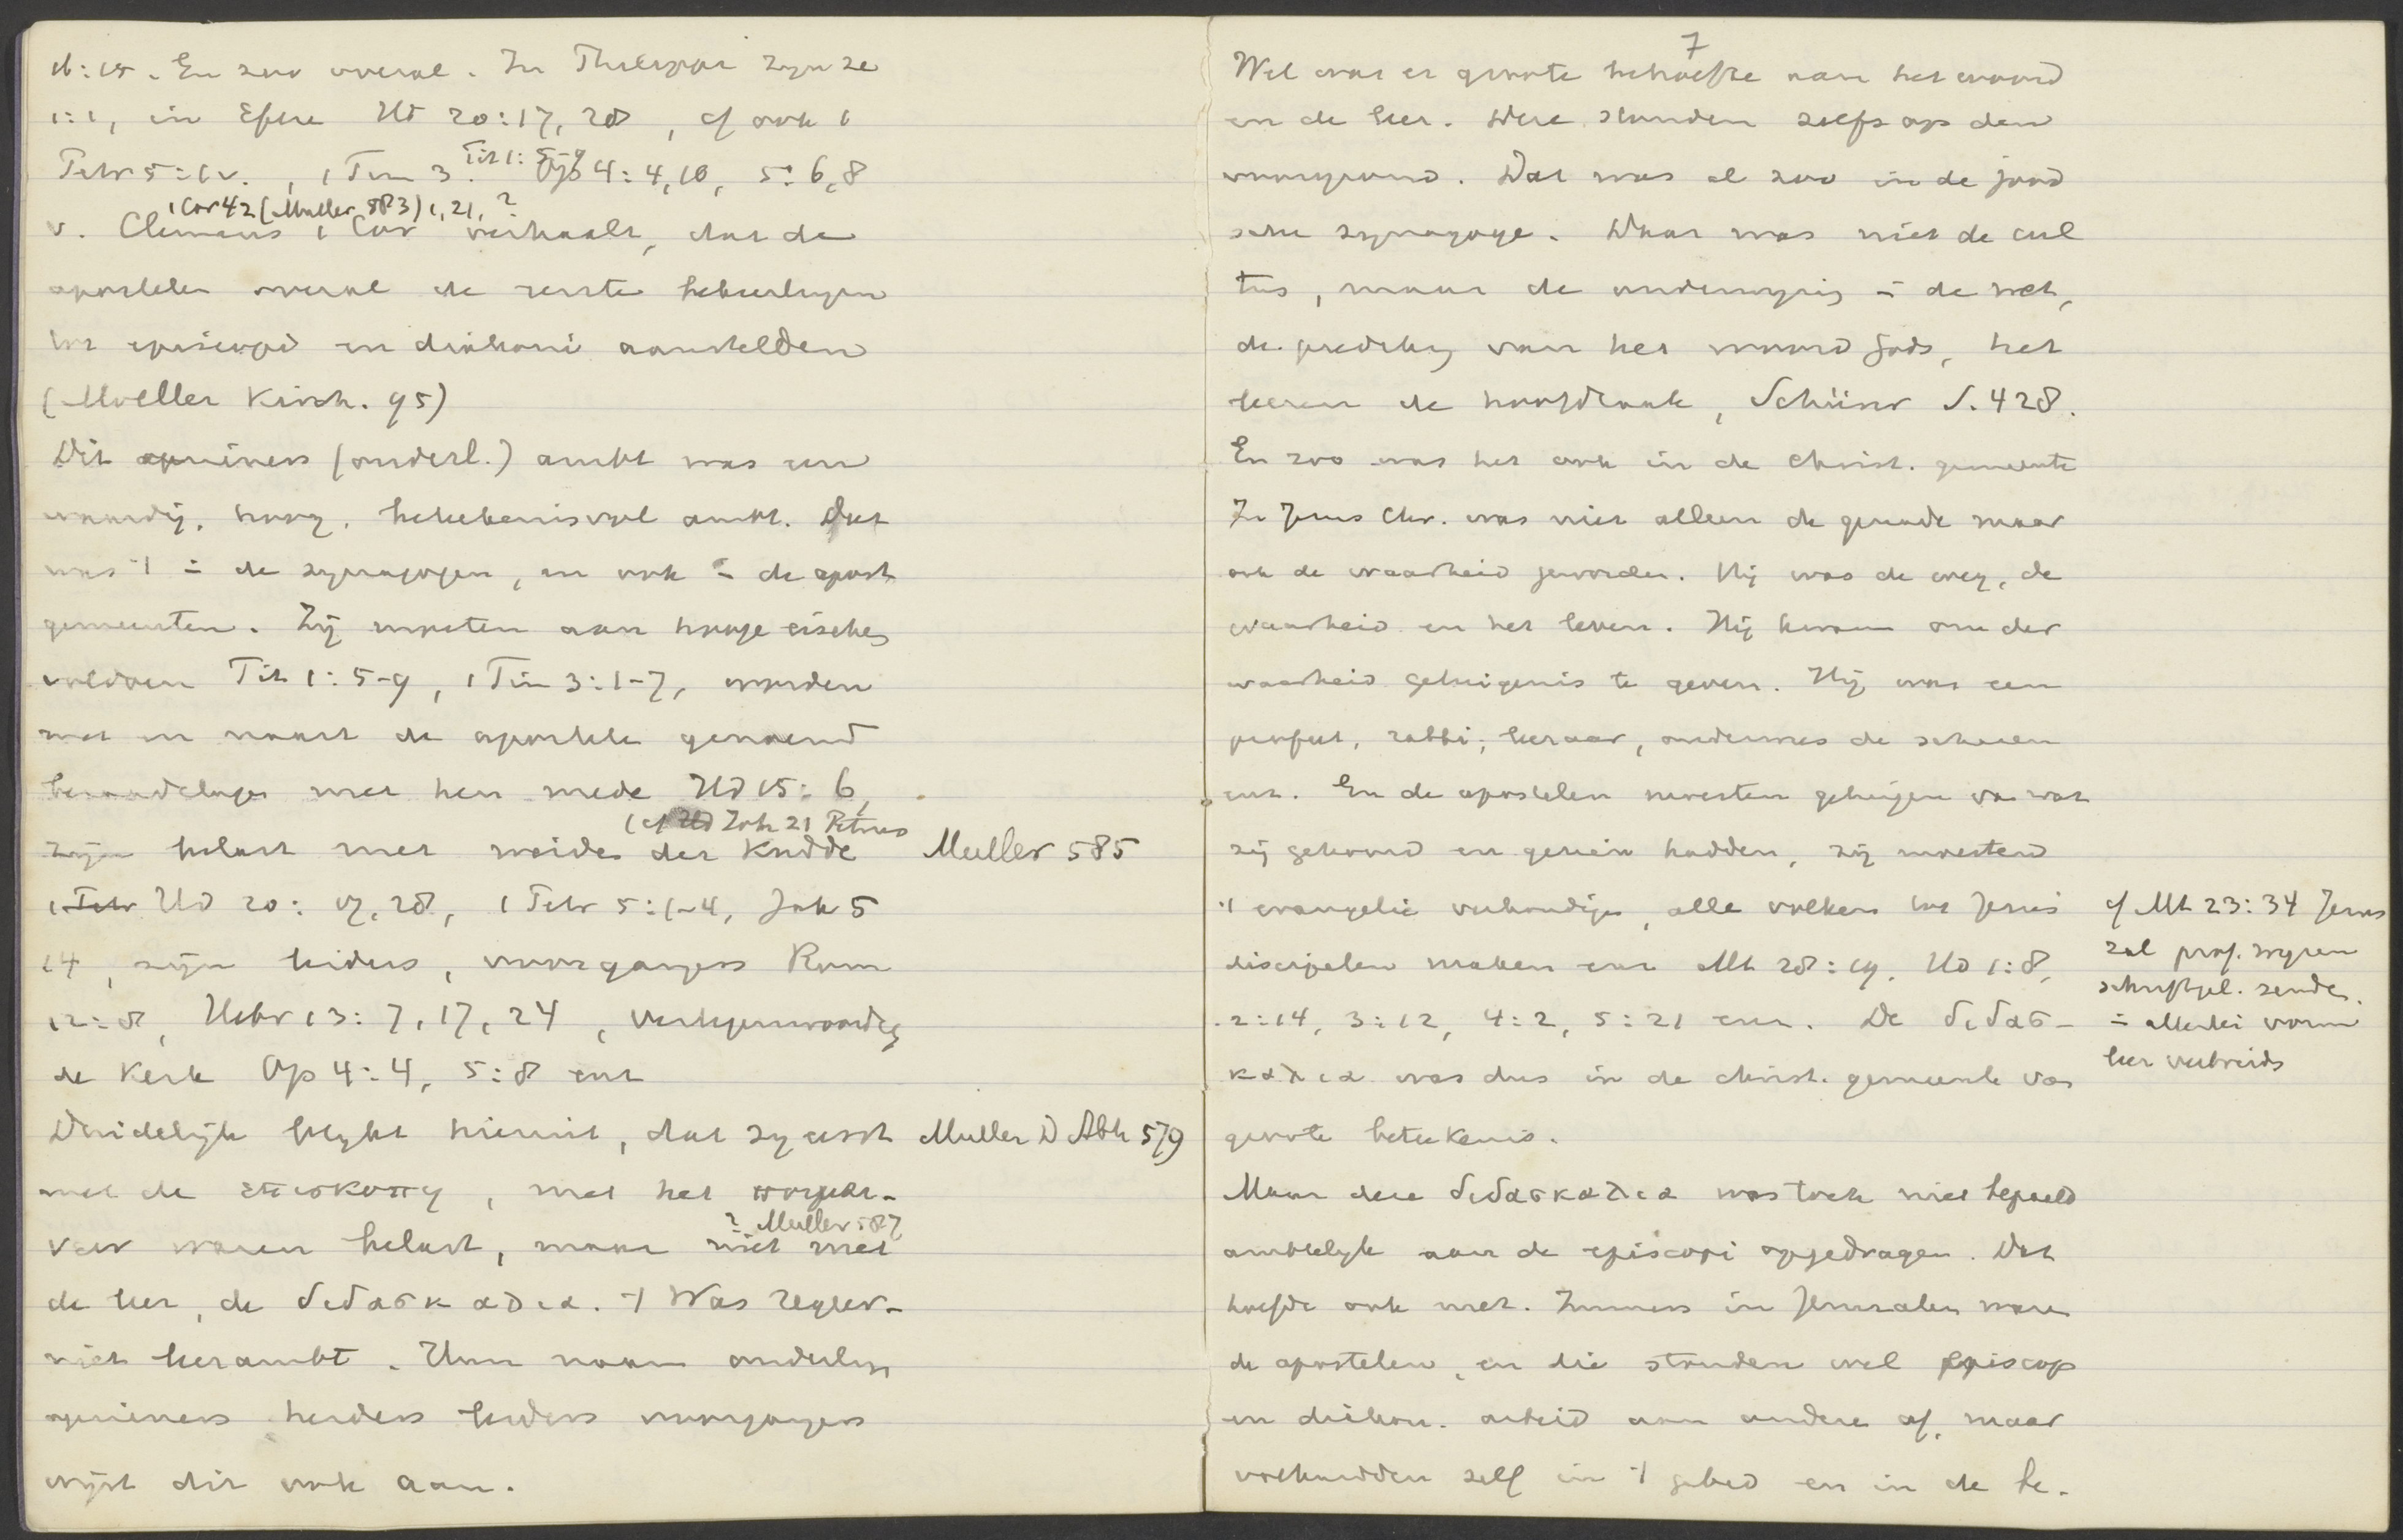 16:15. En zoo overal. In Philippi zijn ze
1:1, in Efeze Hd 20:17, 28, cf ook 1
Petr 5:1v., 1 Tim 3. Tit 1:5-9 Op 4:4, 10, 5:6,8
1 Cor 42 (Muller 583) 1, 21, ?
v. Clemens 1 Cor verhaalt, dat de
apostelen overal de eerste bekeerlingen
tot episcopi en diakoni aanstelden
(Moeller Kirch. 95)
Dit opzieners (ouderl.) ambt was een
waardig, hoog, beteekenisvol ambt. Dat
was 't = de synagogen, en ook = de apost
gemeenten. Zij moeten aan hooge eischen
voldoen Tit 1:5-9, 1 Tim 3:1-7, worden
met en naast de apostelen genoemd
beraadslagen met hen mede Hd 15:6,
(cf Hd Joh 21 Petrus
zijn belast met weiden der Kudde Muller 585
1 Petr Hd 20:17, 28, 1 Petr 5:1-4, Jak 5
14, zijn leiders, voorgangers Rom
12:8, Hebr 13:7, 17, 24, vertegenwoordig
de Kerk Op 4:4, 5:8 enz
Duidelijk blijkt hieruit, dat zij eerst Muller D Abh 579
met de επισκοπη, met het
? Muller 587
waren belast, maar niet met
de leer, de διδασκαλια. 't Was regeer-
niet leerambt. Hun naam ouderlgn
opzieners herders leiders voorgangers
wijst dit ook aan.
7
Wel was er groote behoefte aan het woord
en de leer. Deze stonden zelfs op den
voorgrond. Dat was al zoo in de jood
sche synagoge. Daar was niet de cul
tus, maar de onderwijzing = de wet,
de prediking van het woord Gods, het
leeren de hoofdzaak, Schürer S. 428.
En zoo was het ook in de Christ. gemeente
In Jezus Chr. was niet alleen de genade maar
ook de waarheid geworden. Hij was de weg, de
waarheid en het leven. Hij kwam om der
waarheid getuigenis te geven. Hij was een
profeet, rabbi, leeraar, onderwees de scharen
enz. En de apostelen moesten getuigen van wat
zij gehoord en gezien hadden, zij moesten
't evangelie verkondigen, alle volken tot Jezus
discipelen maken enz Mt 28:19, Hd 1:8,
2:14, 3:12, 4:2, 5:21 enz. De διδασ-
καλια was dus in de christ. gemeente van
groote beteekenis.
cf Mt 23:34 Jezus
zal prof. wijzen
schriftgel. zenden.
= allerlei vorm
leer verbreid
Maar deze διδασκαλια was toch niet bepaald
ambtelijk aan de episcopi opgedragen. Dat
hoefde ook niet. Immers in Jeruzalem waren
de apostelen, en die stonden wel episcop
en diakon. arbeid aan andere af, maar
volhardden zelf in 't gebed en in de be-